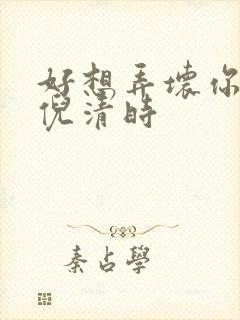 好想弄壞你
倪清時
秦占學